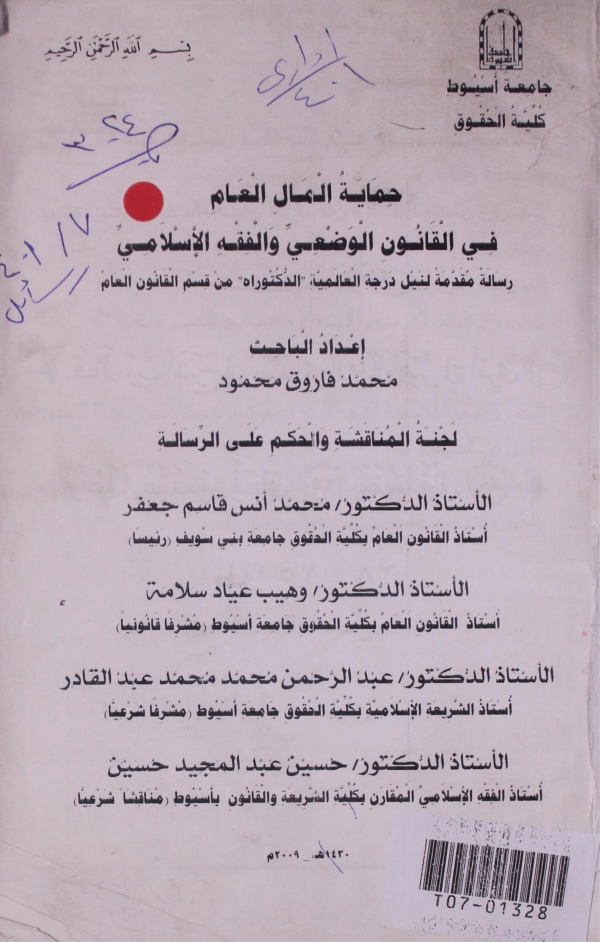 بِسْمِ اللهِ الرَّحْمٰنِ الرَّحِيْمِ
جامعة أسيوط
جَامعَة أسْيُوط
كُلِّيَّةُ الحُقُوق
٢٤
٣
حِمَايَةُ الْمَالِ الْعَام
فِي الْقَانُونِ الْوَضْعِيِّ وَالْفِقْهِ الْإِسْلَامِيِّ
رسَالةٌ مُقَدَّمَة لنَيْلِ دَرَجَةِ العَالميَّةِ "الدُّكْتُورَاه" مِن قِسْمِ القَانُونِ العَامْ
إعْدَادُ الْبَاحِث
مُحَمَد فَارُوق مَحمُود
لَجْنَةُ الْمُنَاقَشَةِ وَالْحكمِ عَلَى الرِّسَالَةِ
الأُسْتَاذ الدُّكتُور/ مُحَمَد أَنَس قَاسِم جَعفَر
أُسْتَاذُ القَانُونِ العَامْ بكُلِّيَّةِ الحُقُوقِ جَامعَة بَنِي سوَيف (رَئيسًا)
الأُسْتَاذ الدُّكتُور/ وَهيب عيَّاد سَلامة
أُسْتَاذُ القَانُونِ العَامْ بكُلِّيَّةِ الحُقُوقِ جَامعَة أسْيُوط (مُشْرفًا قَانُونيًا)
الأُسْتَاذ الدُّكتُور/ عَبد الرَّحمن مُحَمد مُحَمد عَبد القَادر
أُسْتَاذُ الشَّريعَةِ الإسْلَاميَّةِ بكُلِّيَّةِ الحُقُوقِ جَامعَة أسْيُوط (مُشْرفًا شَرعيًّا)
الأُسْتَاذ الدُّكتُور/ حُسَين عَبد المجِيد حُسَين
أُسْتَاذُ الفِقْهِ الإسْلَاميِّ المُقَارَنِ بكُلِّيَّةِ الشَّريعَةِ وَالقَانُونِ بأسْيُوط (مُنَاقشًا شَرعيًّا)
١٤٣٠هـ _ ٢٠٠٩م
T07-01328